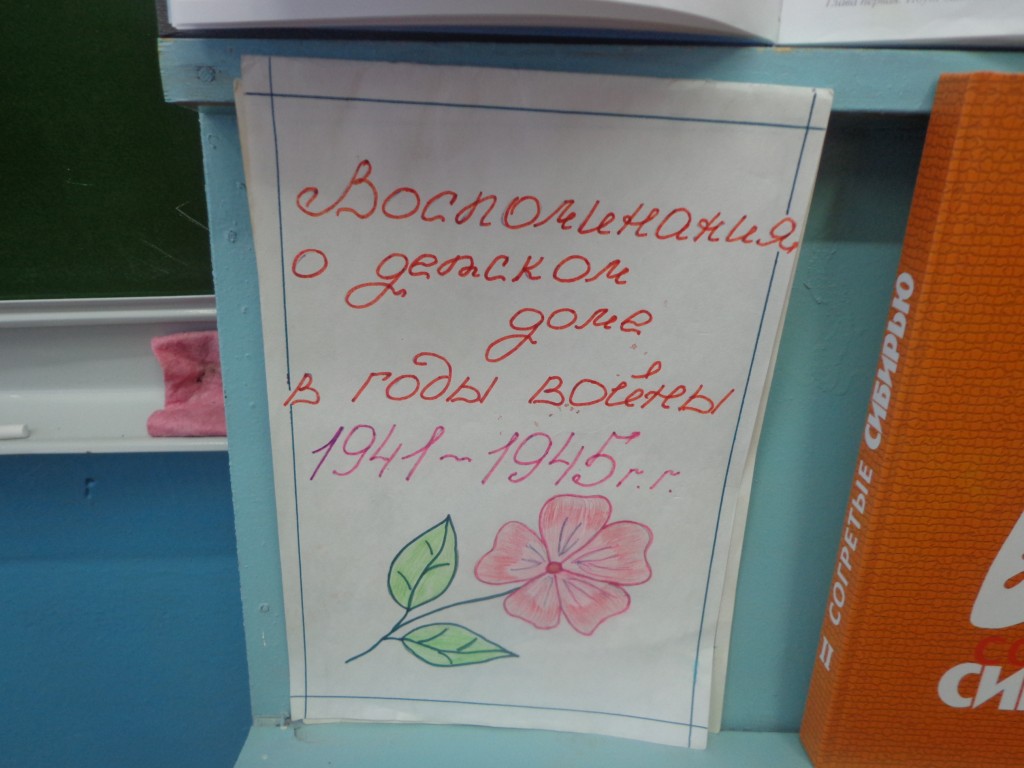 Воспоминания
о детском
доме
в годы войны
1941-1945 г.г.
II СОГРЕТЫЕ СИБИРЬЮ
СО
СИ